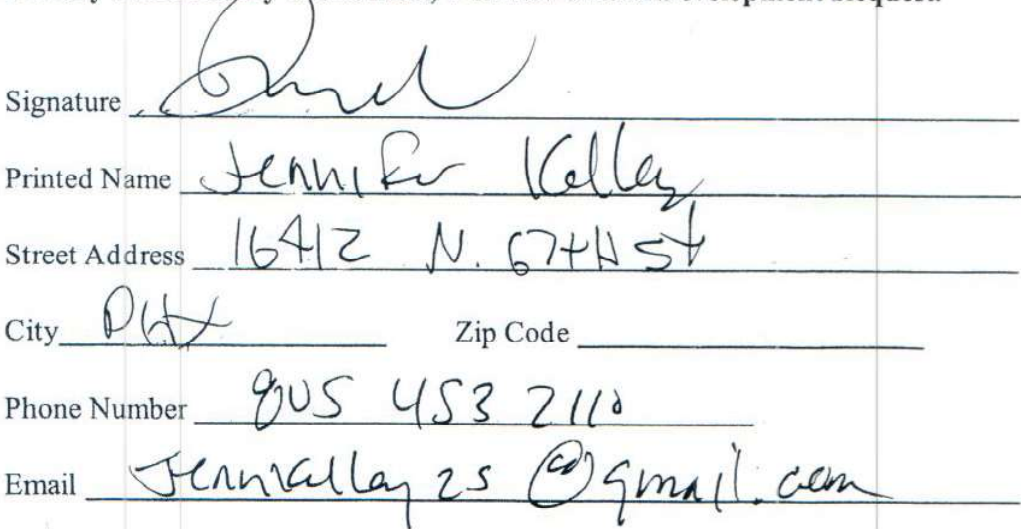 Development Request
Signature
Printed Name Jennifer Kelley
Street Address 16412 N. 67tH St
City PHX Zip Code
Phone Number 805 453 2110
Email Jennkelley25@gmail.com